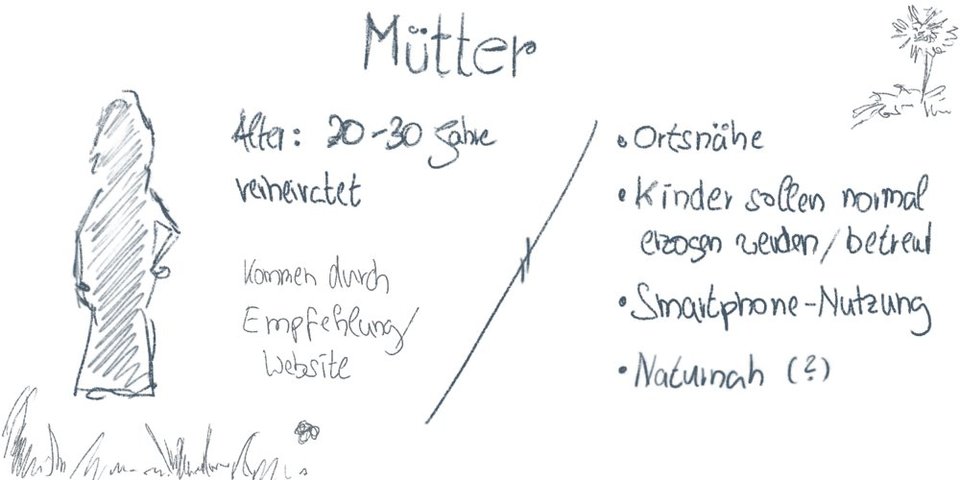 Mütter
Alter: 20-30 Jahre
verheiratet
Kommen durch
Empfehlung/
Website
• Ortsnähe
• Kinder sollen normal
erzogen werden/betreut
• Smartphone-Nutzung
• Naturnah (?)